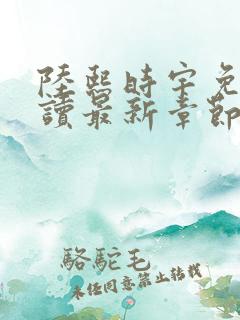 陸熙時宇免
讀最新章節
駱駝毛
未经同意禁止转载